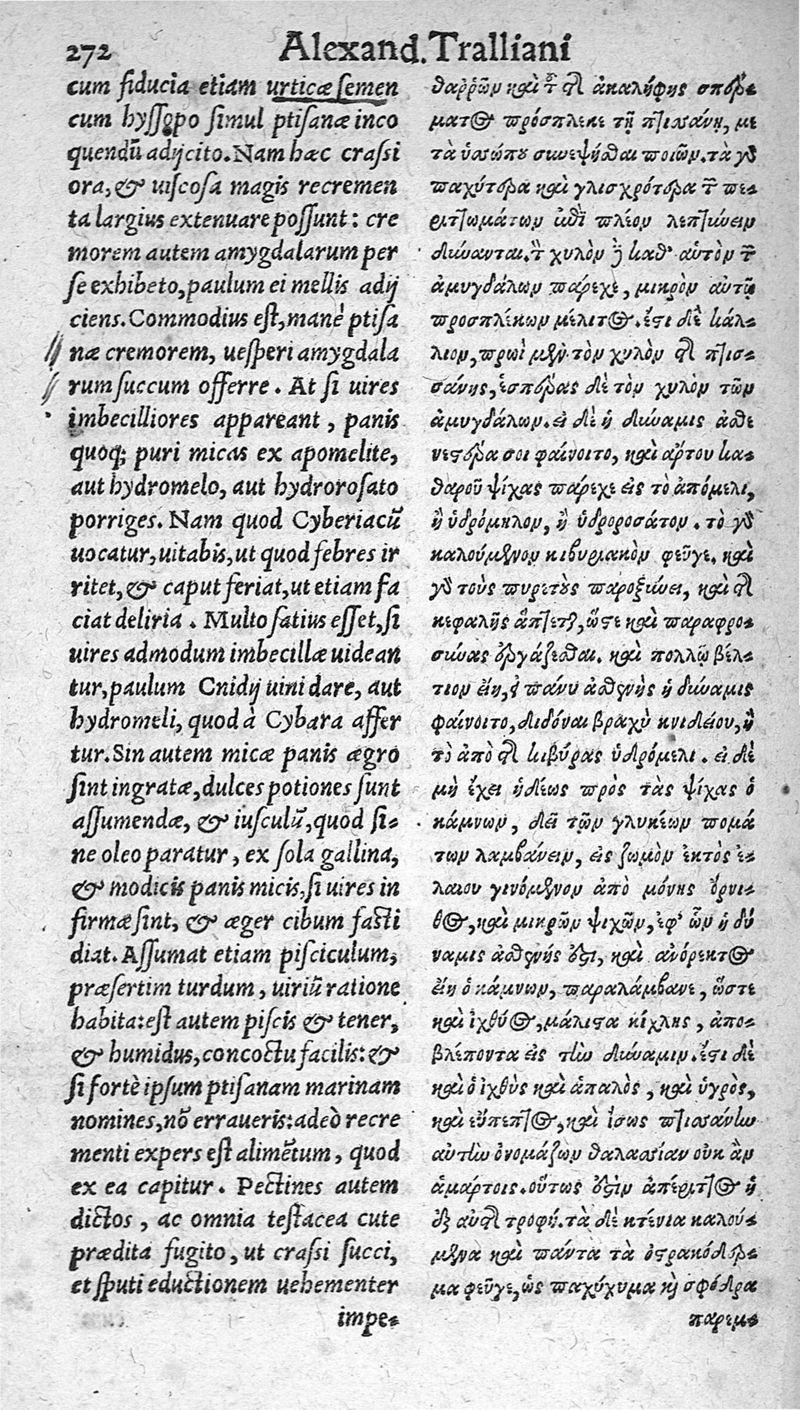 272 Alexand. Tralliani
cum fiducia etiam urticæ semen
cum hyssopo simul ptisanæ inco
quendũ adijcito. Nam hæc crassi
ora, & uiscosa magis recremen
ta largius extenuare possunt: cre
morem autem amygdalarum per
se exhibeto, paulum ei mellis adij
ciens. Commodius est, manè ptisa
næ cremorem, uesperi amygdala
rum succum offerre. At si uires
imbecilliores appareant, panis
quoq; puri micas ex apomelite,
aut hydromelo, aut hydrorosato
porriges. Nam quod Cyberiacũ
uocatur, uitabis, ut quod febres ir
ritet, & caput feriat, ut etiam fa
ciat deliria. Multo satius esset, si
uires admodum imbecillæ uidean
tur, paulum Cnidij uini dare, aut
hydromeli, quod à Cybara affer
tur. Sin autem micæ panis ægro
sint ingratæ, dulces potiones sunt
assumendæ, & iusculũ, quod si-
ne oleo paratur, ex sola gallina,
& modicis panis micis, si uires in
firmæ sint, & æger cibum fasti
diat. Assumat etiam pisciculum,
præsertim turdum, uiriũ ratione
habita: est autem piscis & tener,
& humidus, concoctu facilis: &
si fortè ipsum ptisanam marinam
nomines, nõ erraueris: adeò recre
menti expers est alimẽtum, quod
ex ea capitur. Pectines autem
dictos, ac omnia testacea cute
prædita fugito, ut crassi succi,
et sputi eductionem uehementer
impe-
θαρρῶν καὶ τὸ τῆς ἀκαλήφης σπέρ-
ματος πρόσπλεκε τῇ πτισάνῃ, με
τὰ ὑσώπου συνεψῆσθαι ποιῶν. τὰ γὰρ
παχύτερα καὶ γλισχρότερα τῶν πε-
ριττωμάτων ἐπὶ πλέον λεπτύνειν
δύνανται. τὸν χυλὸν δὲ καθ' αὑτὸν τῶν
ἀμυγδάλων πάρεχε, μικρὸν αὐτῷ
προσπλέκων μέλιτος. ἔστι δὲ κάλ-
λιον, πρωὶ μὲν τὸν χυλὸν τῆς πτισ-
σάνης, ἑσπέρας δὲ τὸν χυλὸν τῶν
ἀμυγδάλων. εἰ δὲ ἡ δύναμις ἀσθε
νεστέρα σοι φαίνοιτο, καὶ ἄρτου κα-
θαροῦ ψίχας πάρεχε εἰς τὸ ἀπόμελι,
ἢ ὑδρόμηλον, ἢ ὑδροροσάτον. τὸ γὰρ
καλούμενον κιβυριακὸν φεῦγε. καὶ
γὰρ τοὺς πυρετοὺς παροξύνει, καὶ τῆς
κεφαλῆς ἅπτεται, ὥστε καὶ παραφρο-
σύνας ἐργάζεσθαι. καὶ πολλῷ βέλ-
τιον εἴη, εἰ πάνυ ἀσθενὴς ἡ δύναμις
φαίνοιτο, διδόναι βραχὺ κνιδείου, ἢ
τὸ ἀπὸ τῆς κιβύρας ὑδρόμελι. εἰ δὲ
μὴ ἔχει ἡδέως πρὸς τὰς ψίχας ὁ
κάμνων, δεῖ τῶν γλυκέων πομά
των λαμβάνειν, εἰς ζωμὸν ἐκτὸς ἐ-
λαίου γινόμενον ἀπὸ μόνης ὄρνι-
θος, καὶ μικρῶν ψιχῶν, ἐφ' ὧν ἡ δύ
ναμις ἀσθενής ἐστι, καὶ ἀνόρεκτος
εἴη ὁ κάμνων, παραλάμβανε, ὥστε
καὶ ἰχθύος, μάλιστα κίχλης, ἀπο-
βλέποντα εἰς τὴν δύναμιν. ἔστι δὲ
καὶ ὁ ἰχθὺς καὶ ἁπαλὸς, καὶ ὑγρὸς,
καὶ εὔπεπτος, καὶ ἴσως πτισάνην
αὐτὴν ὀνομάζων θαλασσίαν οὐκ ἂν
ἁμάρτοις. οὕτως ἐστὶν ἀπέριττος ἡ
ἐξ αὐτῆς τροφή. τὰ δὲ κτένια καλού-
μενα καὶ πάντα τὰ ὀστρακόδερ-
μα φεῦγε, ὡς παχύχυμα καὶ σφόδρα
παρεμ-